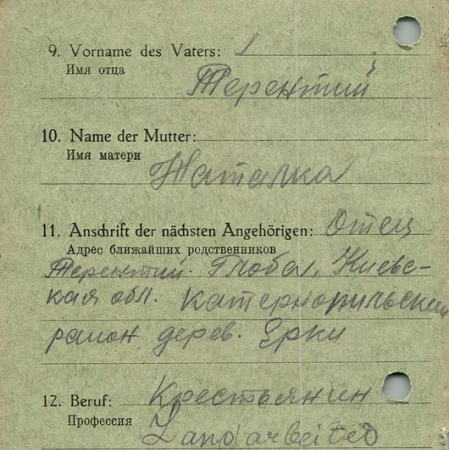 9. Vorname des Vaters:
Имя отца
Терентий
10. Name der Mutter:
Имя матери
Наталка
11. Anschrift der nächsten Angehörigen: Отец
Адрес ближайших родственников
Терентий. Глоба. Киевс-
кая обл. Катернопильский
район дерев. Ерки
12. Beruf: Крестьянин
Профессия Landarbeiter